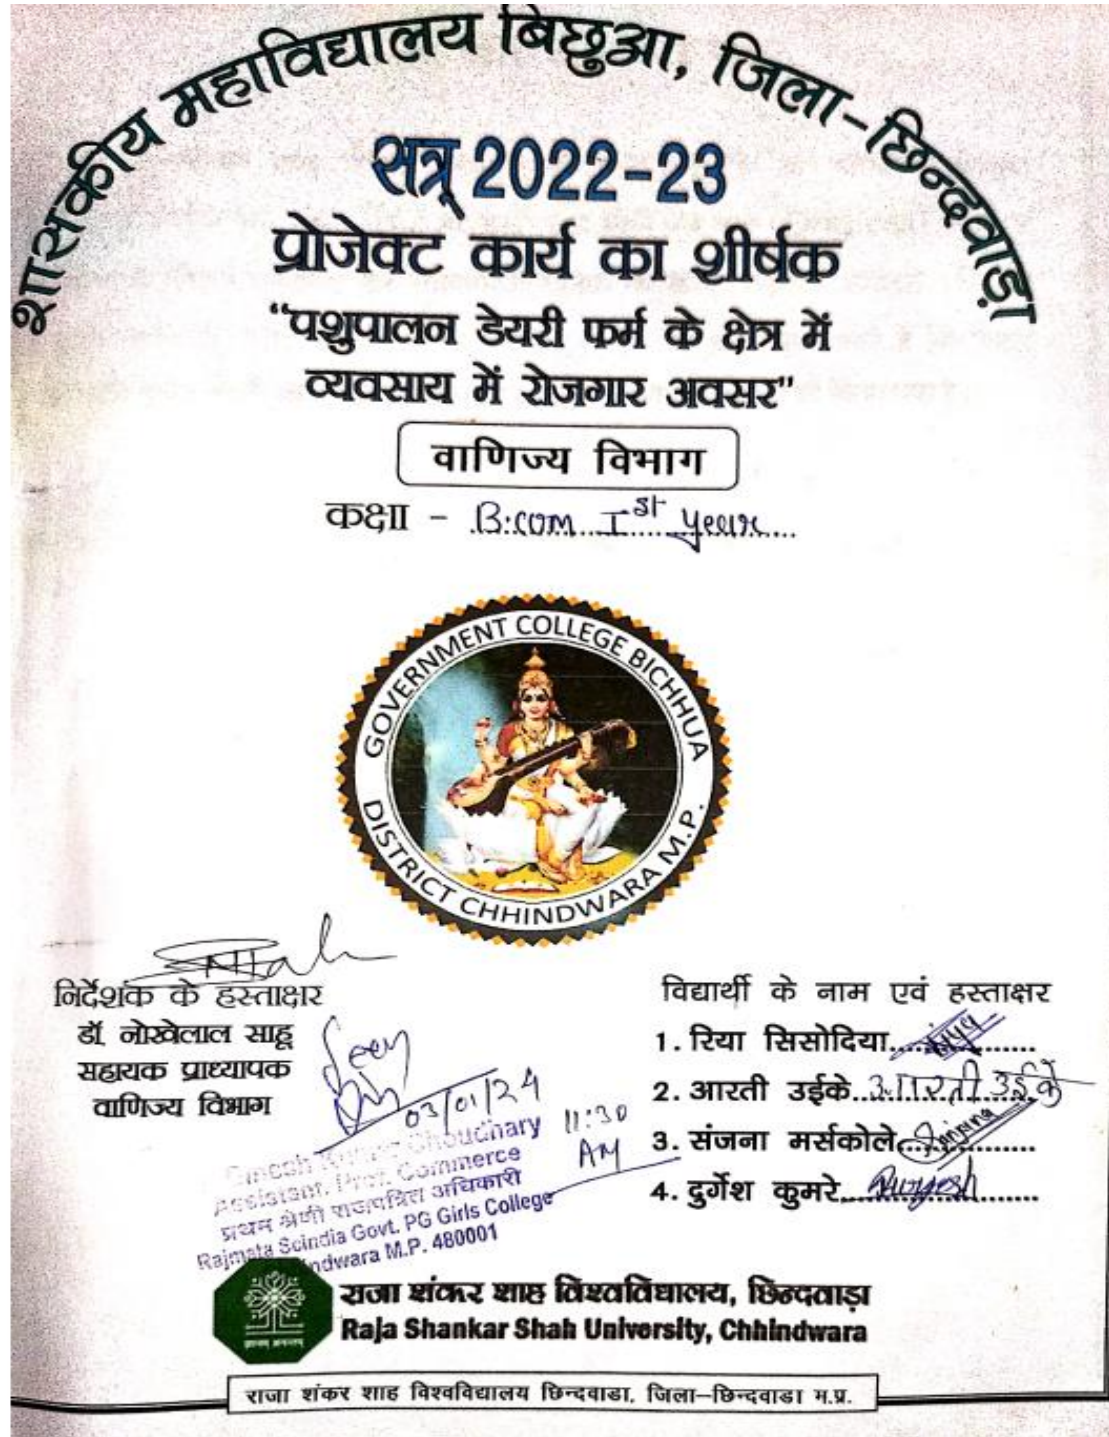 शासकीय महाविद्यालय बिछुआ, जिला-छिन्दवाड़ा
सत्र् 2022-23
प्रोजेक्ट कार्य का शीर्षक
"पशुपालन डेयरी फर्म के क्षेत्र में
व्यवसाय में रोजगार अवसर"
वाणिज्य विभाग
कक्षा - B.com Ist Year
GOVERNMENT COLLEGE BICHHUA
DISTRICT CHHINDWARA M.P.
निर्देशक के हस्ताक्षर
डॉ. नोखेलाल साहू
सहायक प्राध्यापक
वाणिज्य विभाग
Seen
03/01/24
11:30
AM
Choudhary
Assistant. Prof. Commerce
प्रथम श्रेणी राजपत्रित अधिकारी
Rajmata Scindia Govt. PG Girls College
M.P. 480001
विद्यार्थी के नाम एवं हस्ताक्षर
1. रिया सिसोदिया
2. आरती उईके आरती उईके
3. संजना मर्सकोले Sanjana
4. दुर्गेश कुमरे Durgesh
राजा शंकर शाह विश्वविद्यालय, छिन्दवाड़ा
Raja Shankar Shah University, Chhindwara
राजा शंकर शाह विश्वविद्यालय छिन्दवाडा, जिला-छिन्दवाडा म.प्र.